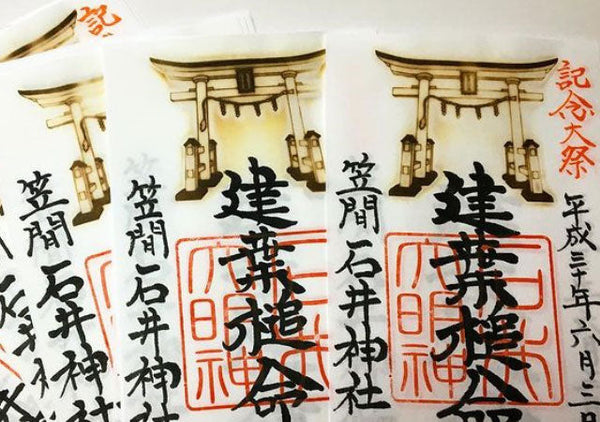 記念大祭
平成三十年六月三日
建葉槌命
笠間石井神社
建葉槌命
笠間石井神社
笠間石井神社
記
大明神
大明神